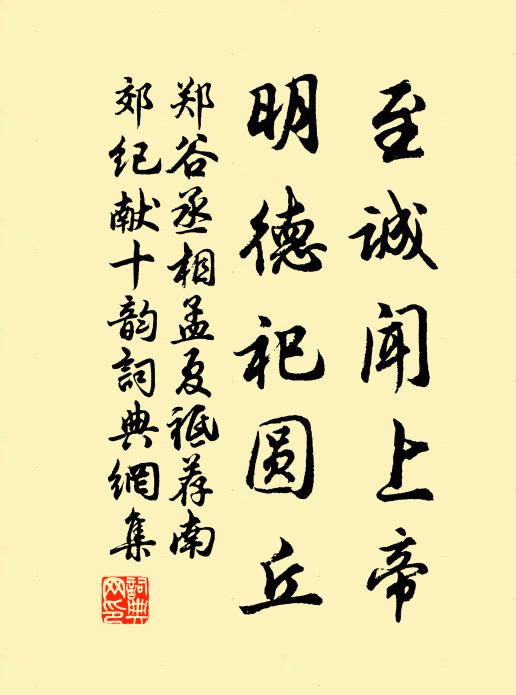 至诚闻上帝
明德祀圆丘
郑谷丞相孟夏祗荐南
郊纪献十韵詞典網集
詞典网印